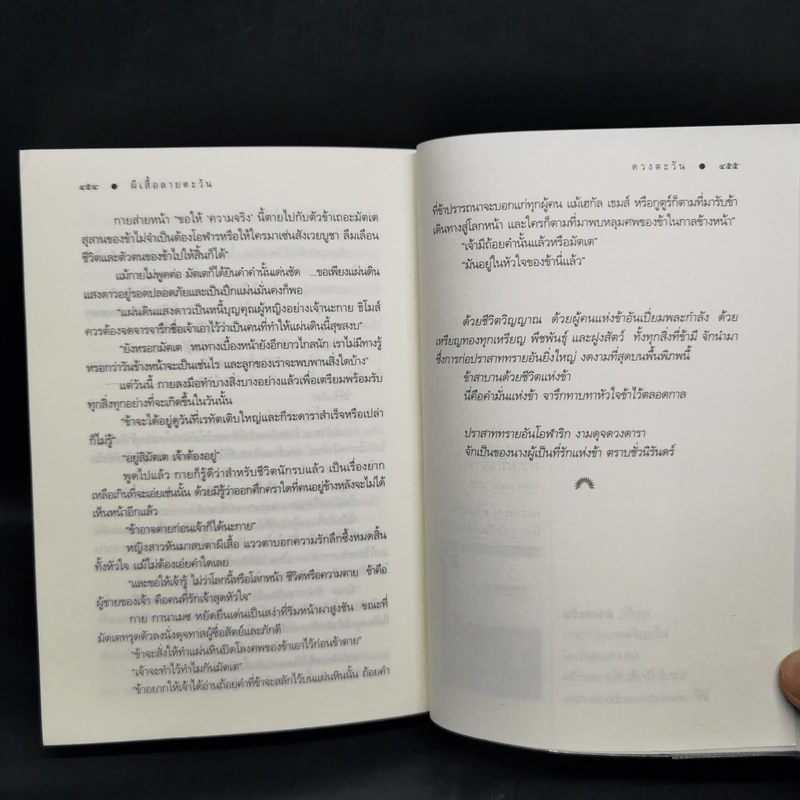 ๔๕๔ ● ผีเสื้อลายตะวัน
กายส่ายหน้า “ขอให้ ‘ความจริง’ นี้ตายไปกับตัวข้าเถอะมัตเต
สุสานของข้าไม่จำเป็นต้องโอฬารหรือให้ใครมาเซ่นสังเวยบูชา ลืมเลือน
ชีวิตและตัวตนของข้าไปให้สิ้นก็ได้”
แม้กายไม่พูดต่อ มัตเตก็ได้ยินคำคำนั้นเด่นชัด ...ขอเพียงแผ่นดิน
แสงดาวอยู่รอดปลอดภัยและเป็นปึกแผ่นมั่นคงก็พอ
“แผ่นดินแสงดาวเป็นหนี้บุญคุณผู้หญิงอย่างเจ้านะกาย ธิโมส์
ควรต้องจดจารจารึกชื่อเจ้าเอาไว้ว่าเป็นคนที่ทำให้แผ่นดินนี้สุขสงบ”
“ยังหรอกมัตเต หนทางเบื้องหน้ายังอีกยาวไกลนัก เราไม่มีทางรู้
หรอกว่าวันข้างหน้าจะเป็นเช่นไร และลูกของเราจะพบพานสิ่งใดบ้าง”
แต่วันนี้ กายลงมือทำบางสิ่งบางอย่างแล้วเพื่อเตรียมพร้อมรับ
ทุกสิ่งทุกอย่างที่จะเกิดขึ้นในวันนั้น
“ข้าจะได้อยู่ดูวันที่เรทัตเติบใหญ่และกีระดาราสำเร็จหรือเปล่า
ก็ไม่รู้”
“อยู่สิมัตเต เจ้าต้องอยู่”
พูดไปแล้ว กายก็รู้ดีว่าสำหรับชีวิตนักรบแล้ว เป็นเรื่องยาก
เหลือเกินที่จะเอ่ยเช่นนั้น ด้วยมิรู้ว่าออกศึกคราใดที่คนอยู่ข้างหลังจะไม่ได้
เห็นหน้าอีกแล้ว
“ข้าอาจตายก่อนเจ้าก็ได้นะกาย”
หญิงสาวหันมาสบตาผีเสื้อ แววตาบอกความรักลึกซึ้งหมดสิ้น
ทั้งหัวใจ แม้ไม่ต้องเอ่ยคำใดเลย
“และขอให้เจ้ารู้ ไม่ว่าโลกนี้หรือโลกหน้า ชีวิตหรือความตาย ข้าคือ
ผู้ชายของเจ้า คือคนที่รักเจ้าสุดหัวใจ”
กาย กานาเมซ หยัดยืนเด่นเป็นสง่าที่ริมหน้าผาสูงชัน ขณะที่
มัตเตทรุดตัวลงนั่งดุจทาสผู้ซื่อสัตย์และภักดี
“ข้าจะสั่งให้ทำแผ่นหินปิดโลงศพของข้าเอาไว้ก่อนข้าตาย”
“เจ้าจะทำไว้ทำไมกันมัตเต”
“ข้าอยากให้เจ้าได้อ่านถ้อยคำที่ข้าจะสลักไว้บนแผ่นหินนั้น ถ้อยคำ
ดวงตะวัน ● ๔๕๕
ที่ข้าปรารถนาจะบอกแก่ทุกผู้คน แม้เฮกัล เธมส์ หรือกูตูร์ก็ตามที่มารับข้า
เดินทางสู่โลกหน้า และใครก็ตามที่มาพบหลุมศพของข้าในกาลข้างหน้า”
“เจ้ามีถ้อยคำนั้นแล้วหรือมัตเต”
“มันอยู่ในหัวใจของข้านี่แล้ว”
ด้วยชีวิตวิญญาณ ด้วยผู้คนแห่งข้าอันเปี่ยมพละกำลัง ด้วย
เหรียญทองทุกเหรียญ พืชพันธุ์ และฝูงสัตว์ ทั้งทุกสิ่งที่ข้ามี จักนำมา
ซึ่งการก่อปราสาททรายอันยิ่งใหญ่ งดงามที่สุดบนพื้นพิภพนี้
ข้าสาบานด้วยชีวิตแห่งข้า
นี่คือคำมั่นแห่งข้า จารึกทาบทาหัวใจข้าไว้ตลอดกาล
ปราสาททรายอันโอฬาริก งามดุจดวงดารา
จักเป็นของนางผู้เป็นที่รักแห่งข้า ตราบชั่วนิรันดร์